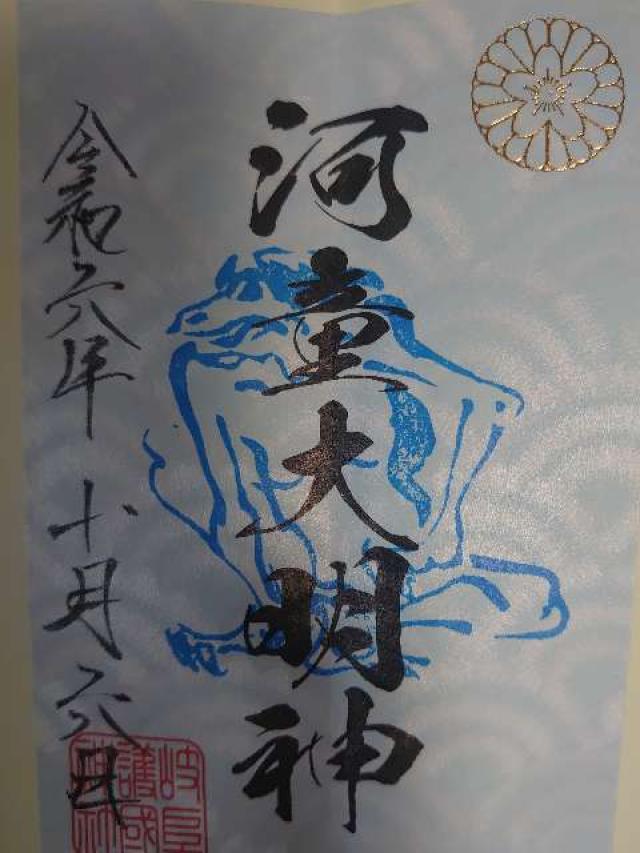 河童大明神
令和六年 十月六日
岐阜
護國
神社